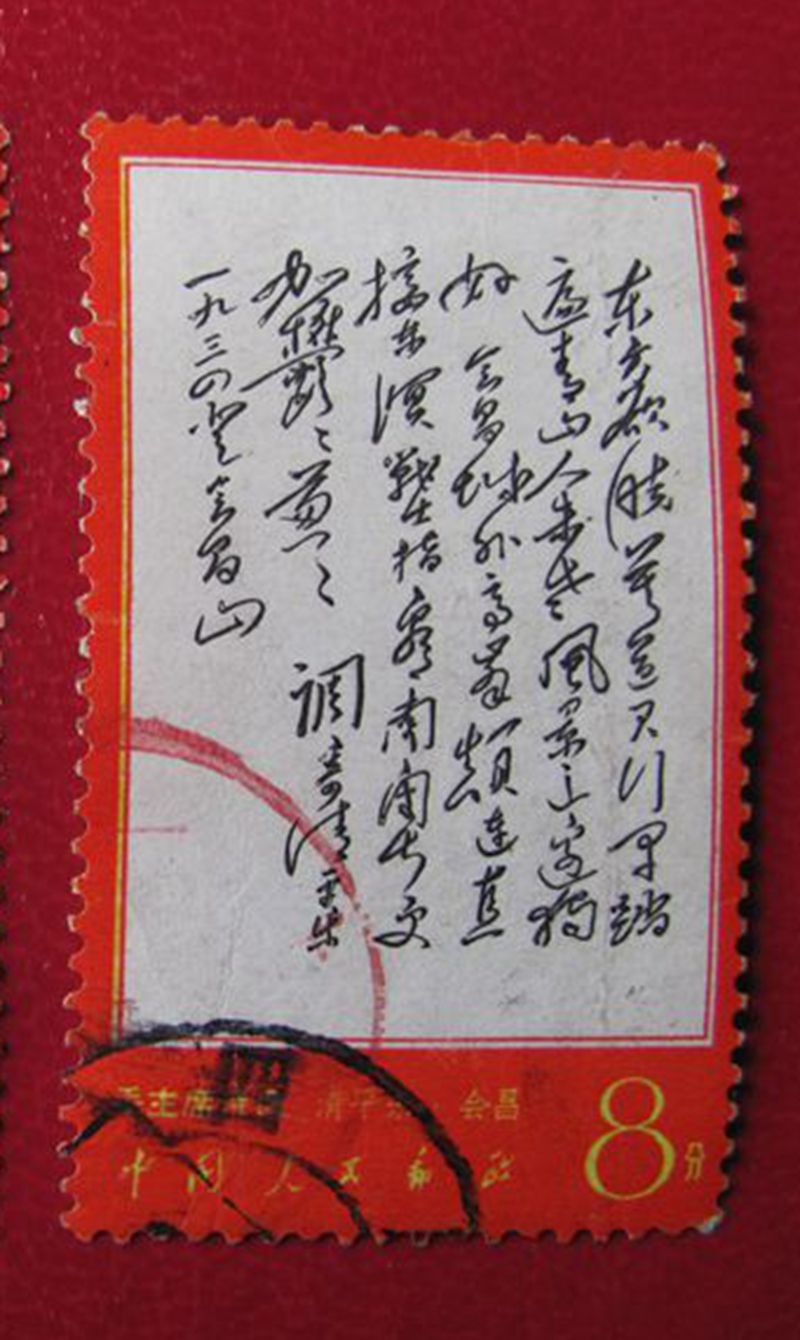 东方欲晓莫道君行早踏
遍青山人未老風景这边独
好 会昌城外高峯颠连直
接东溟戰士指看南粤更
加鬱々葱々 調寄清平乐
一九三四登会昌山
毛主席 清平乐·会昌
中国人民邮政
8分